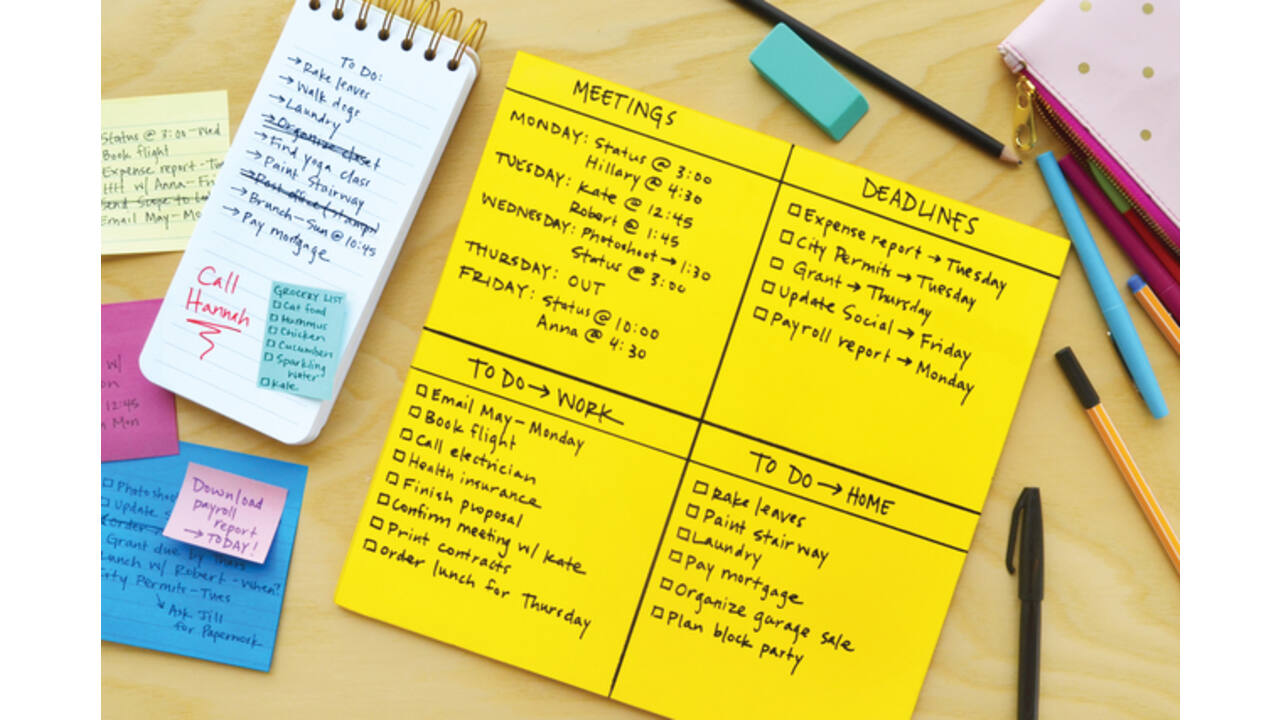 Status @ 3:00-Wed
Book flight
Expense report - Tues
w/ Anna - Fri
Email May - Mo
To Do:
→ Rake leaves
→ Walk dogs
→ Laundry
→ Organize closet
→ Find yoga class
→ Paint Stairway
→ Post office (stamps)
→ Brunch - Sun @ 10:45
→ Pay mortgage
Call
Hannah
GROCERY LIST
□ Cat food
□ Hummus
□ Chicken
□ Cucumber
□ Sparkling
Water
□ Kale
w/
on
12:45
Mon
□ Photoshoo
□ Update
Order
Grant due by Thurs
Lunch w/ Robert - When?
City Permits - Tues
↘ Ask Jill
for Paperwork
Download
payroll
report
→ TODAY!
MEETINGS
MONDAY: Status @ 3:00
Hillary @ 4:30
TUESDAY: Kate @ 12:45
Robert @ 1:45
WEDNESDAY: Photoshoot → 1:30
Status @ 3:00
THURSDAY: OUT
FRIDAY: Status @ 10:00
Anna @ 4:30
DEADLINES
□ Expense report → Tuesday
□ City Permits → Tuesday
□ Grant → Thursday
□ Update Social → Friday
□ Payroll report → Monday
TO DO → WORK
□ Email May - Monday
□ Book flight
□ Call electrician
□ Health insurance
□ Finish proposal
□ Confirm meeting w/ Kate
□ Print contracts
□ Order lunch for Thursday
TO DO → HOME
□ Rake leaves
□ Paint stairway
□ Laundry
□ Pay mortgage
□ Organize garage sale
□ Plan block party